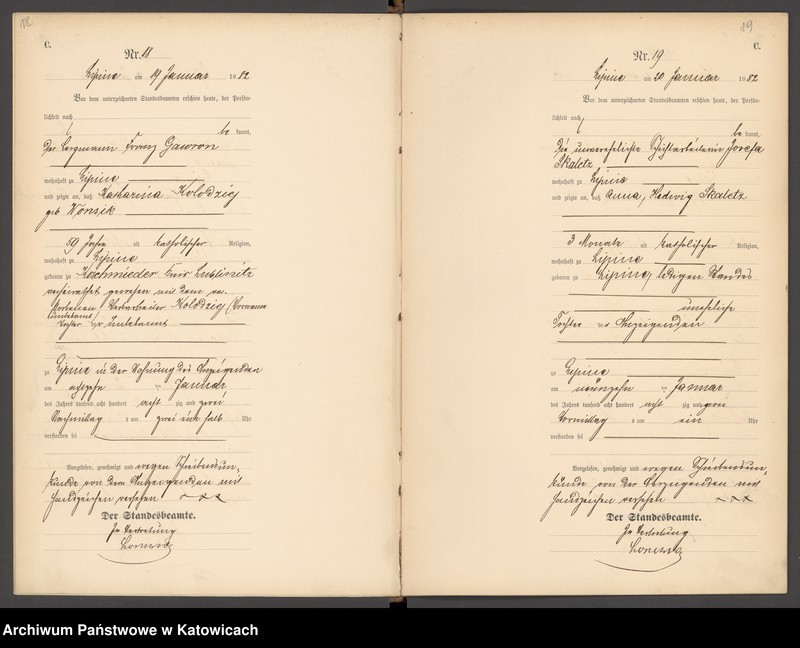 18
C.
Nr. 18
Lipine am 19 Januar 1882
Vor dem unterzeichneten Standesbeamten erschien heute, der Persön-
lichkeit nach
be kannt,
Der Bergmann Franz Gawron
wohnhaft zu Lipine
und zeigte an, daß Katharina Kolodziej
geb. Wonsik
59 Jahre alt katholischer Religion,
wohnhaft zu Lipine
geboren zu Koschmieder Kreis Lublinitz
verheirathet gewesen mit dem ver-
storbenen Kolodziej (Vorname
unbekannt)
Tochter der unbekannt
zu Lipine in der Wohnung des Anzeigenden
am achtzehn ten Januar
des Jahres tausend acht hundert acht zig und zwei
Nachmittag s um zwei ein halb Uhr
verstorben sei
Vorgelesen, genehmigt und wegen Schreibensun-
kunde von dem Anzeigenden mit
Handzeichen versehen xxx
Der Standesbeamte.
In Vertretung
19
C.
Nr. 19
Lipine am 20 Januar 1882
Vor dem unterzeichneten Standesbeamten erschien heute, der Persön-
lichkeit nach
be kannt,
Die unverehelichte Josefa
Skaletz
wohnhaft zu Lipine
und zeigte an, daß Anna, Hedwig Skaletz
3 Monate alt katholischer Religion,
wohnhaft zu Lipine
geboren zu Lipine, ledigen Standes
uneheliche
Tochter der Anzeigenden
zu Lipine
am neunzehn ten Januar
des Jahres tausend acht hundert acht zig und zwei
Vormittag s um ein Uhr
verstorben sei
Vorgelesen, genehmigt und wegen Schreibensun-
kunde von der Anzeigenden mit
Handzeichen versehen xxx
Der Standesbeamte.
In Vertretung
Archiwum Państwowe w Katowicach